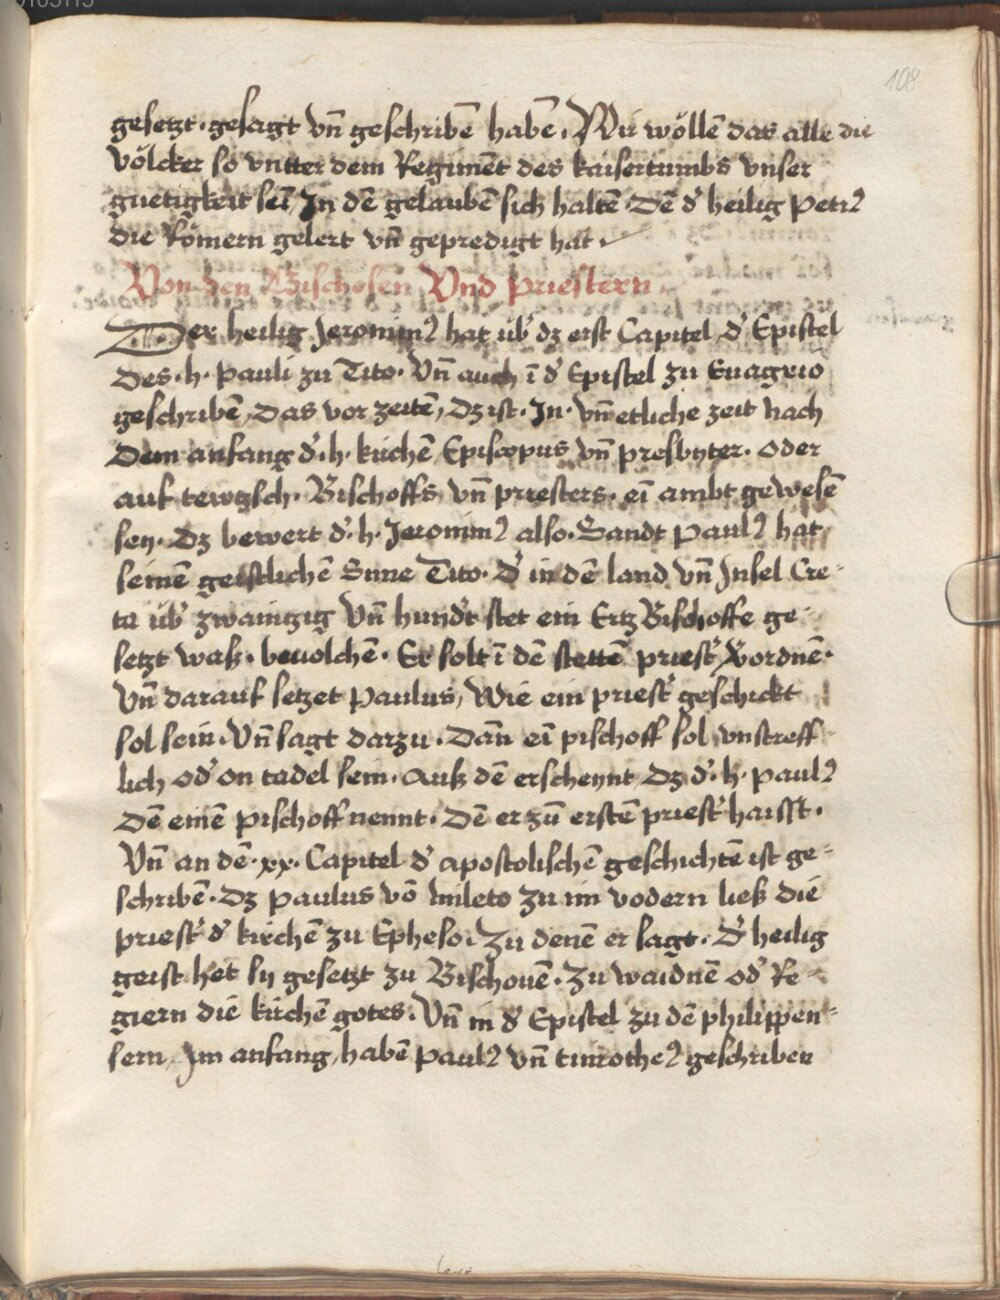 108
gesetzt · gesagt vn̄ geschribē habē. Wir wöllē das alle die
völcker so vntter dem Regimēt des kaisertumbs vnser
guetigkeit seī / In dē gelaubē sich haltē. Dē d' heilig Petr9
die Römern gelert vn̄ gepredigt hat.
Von den Bischofen Vnd priestern.
Der heilig Jeronim9 hat üb' dz erst Capitel d' Epistel
des · h · Pauli zu Tito. Vn̄ auch ī d' Epistel zu Euagrio
geschribē, Das vor zeitē, Dz ist · In · vn̄ etliche zeit nach
Dem anfang d' · h · kirchē Episcopus vn̄ presbyter. oder
auf tewtzsch. Bischoffs vn̄ priesters. eī ambt gewesē
sey. Dz bewert d' · h · Jeronim9 also. Sandt Paul9 hat
seinē geistlichē Sune Tito. D' in dē land vn̄ Insel Cre-
ta üb' zwaintzig Vn̄ hund't stet ein Ertz Bischoffe ge-
setzt waß. beuolchē. Er solt ī dē stettē priest' Vordnē.
Vn̄ darauf setzet Paulus, Wie ein priest' geschickt
sol sein. Vn̄ sagt darzu. Dan̄ eī pischoff sol vnstreff-
lich od' on tadel sein. Auß dē erscheynt Dz d' · h · Paul9
Dē einē pischoff nennt. Dē er zū erstē priest' haisst.
Vn̄ an dē · xx · Capitel d' apostolischē geschichtē ist ge-
schribē. Dz Paulus vō Mileto zu im vodern ließ die
priest' d' kirchē zu Epheso. Zu denē er sagt. D' heilig
geist het sy gesetzt zu Bischouē. Zu waidnē od' Re-
giern die kirchē gotes. Vn̄ in d' Epistel zu dē philippen-
sern, Im anfang, habē Paul9 vn̄ timothe9 geschriben